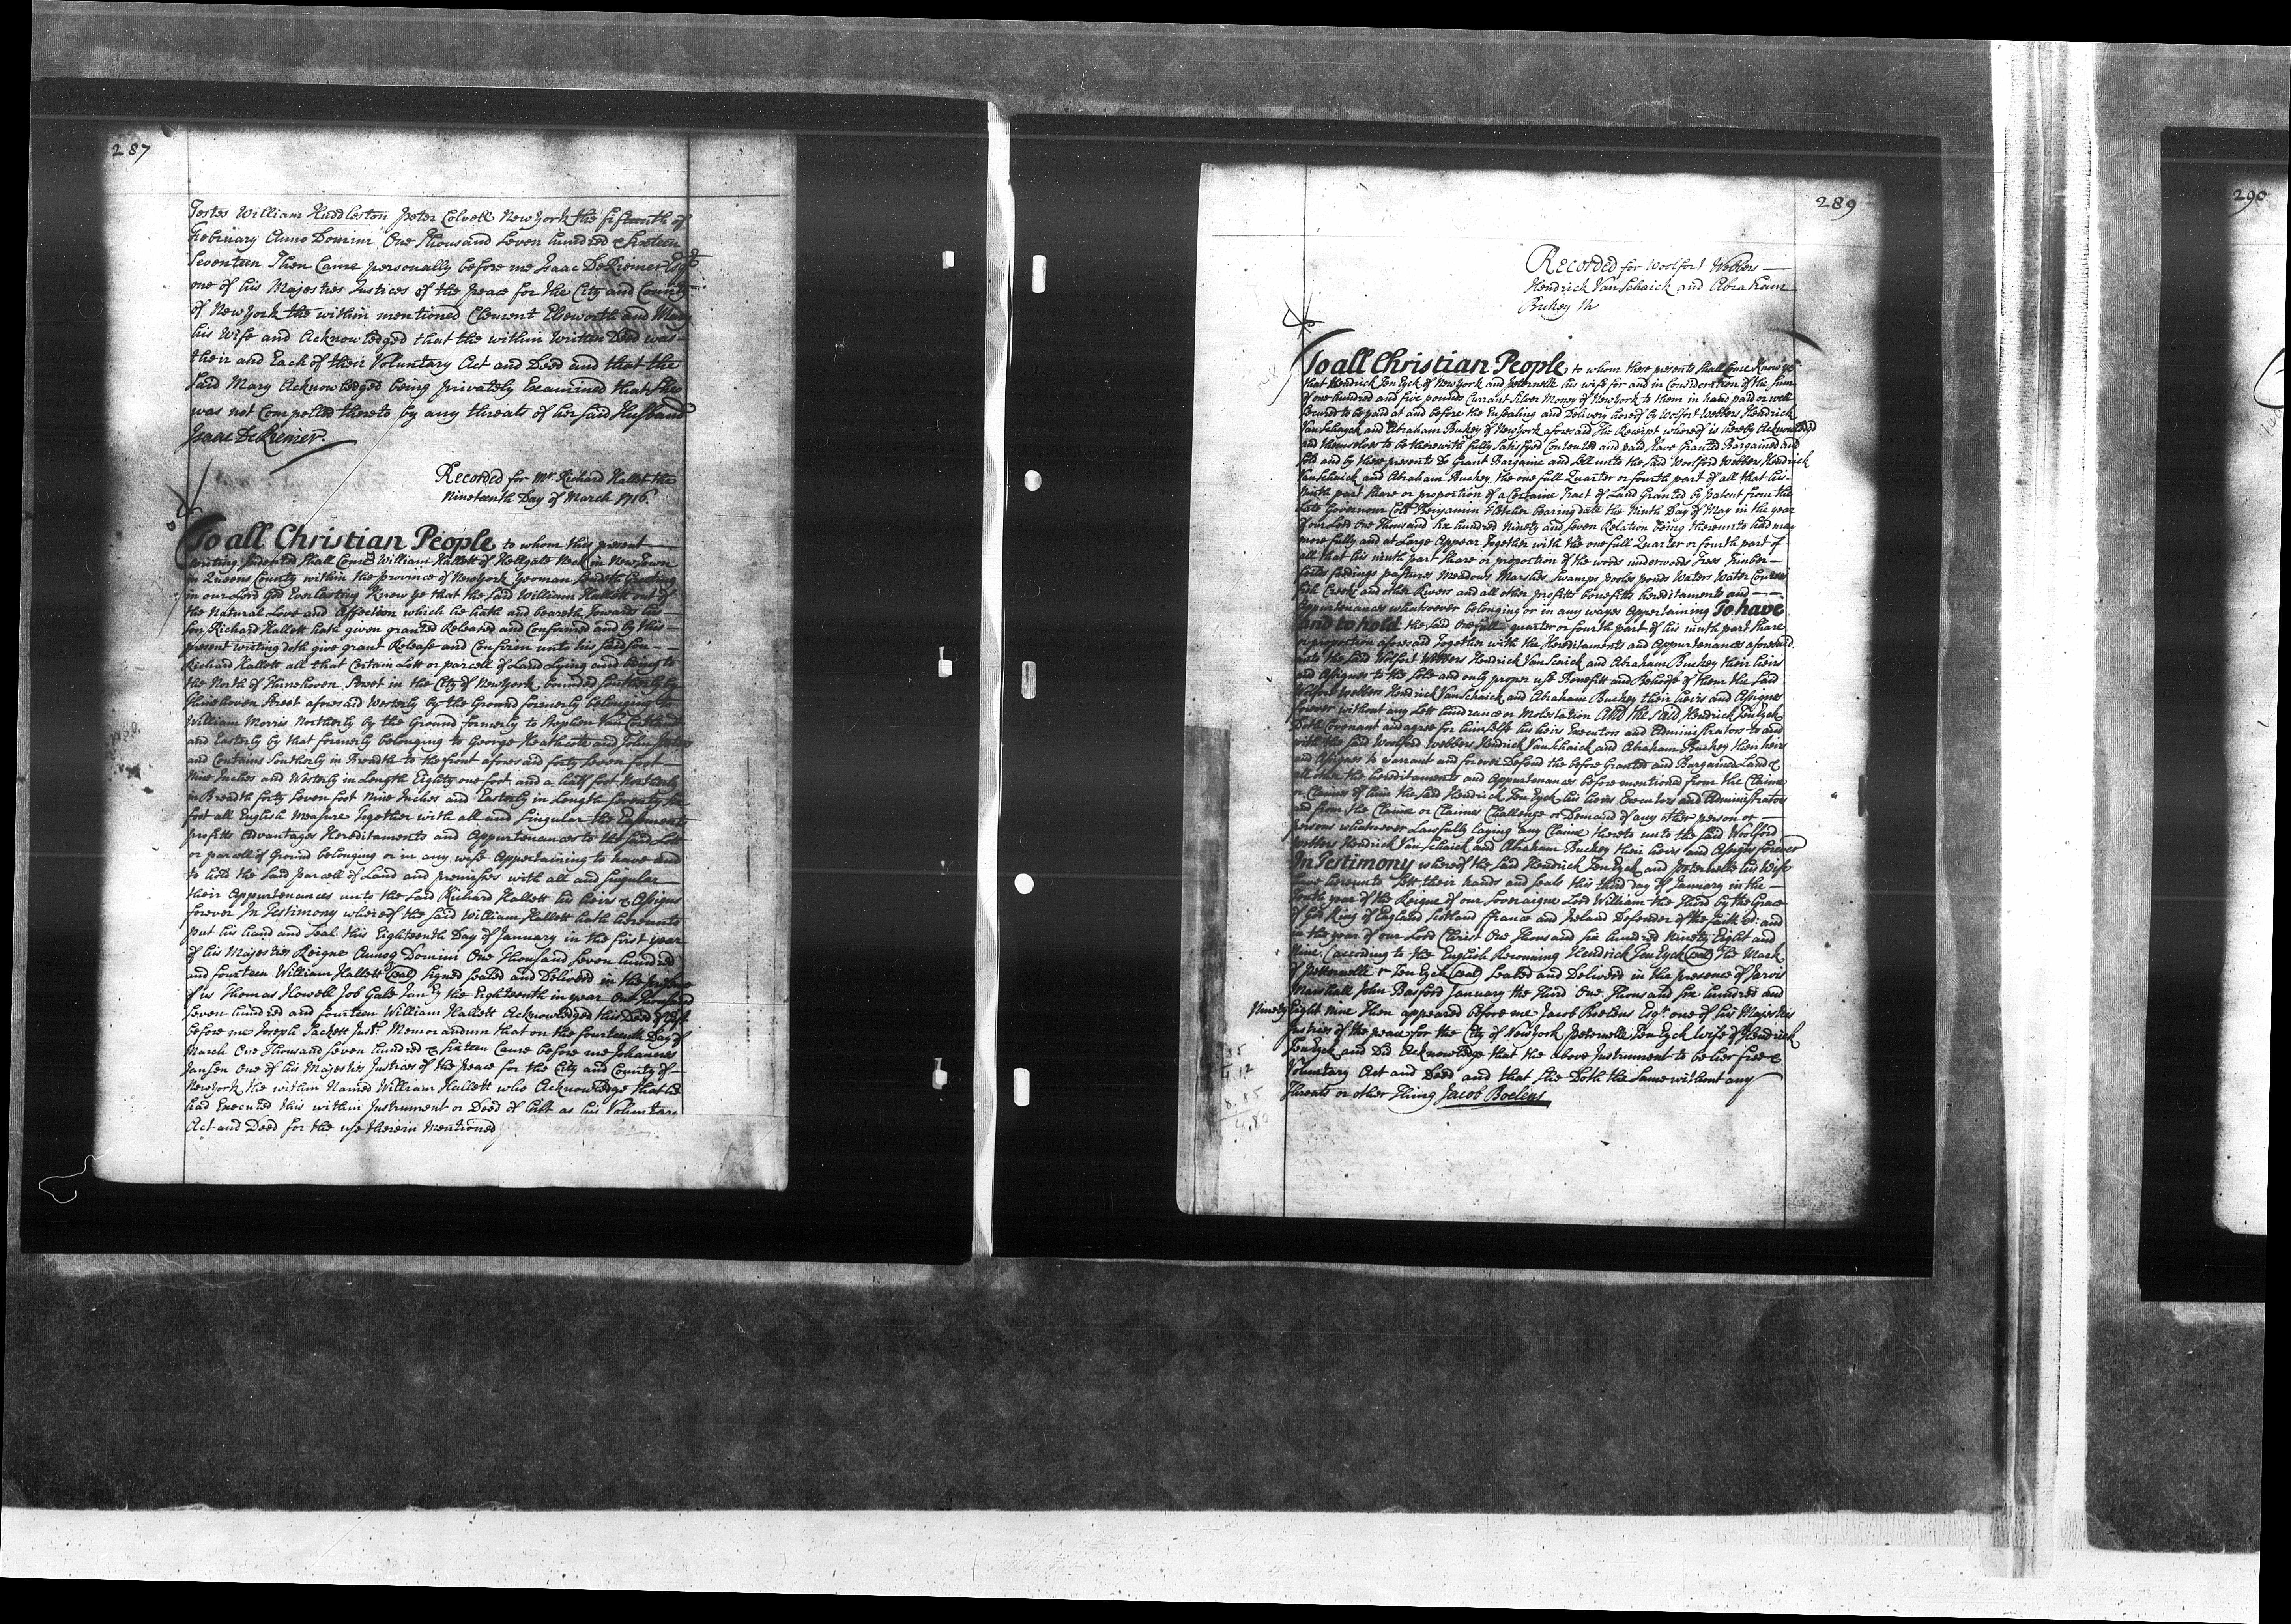 287
Testes William Huddleston Peter Colvell New York the fifteenth of
February Anno Domini One Thousand Seven hundred & Sixteen
Seventeen Then Came personally before me Isaac DeRiemer Esqr
one of his Majesties Justices of the peace for the City and County
of New York the within mentioned Clement Elsworth and Mary
his Wife and Acknowledged that the within Written Deed was
their and Each of their Voluntary Act and Deed and that the
said Mary Acknowledged being privately Examined that She
was not Compelled thereto by any threats of her said Husband
Isaac DeRiemer
Recorded for Mr. Richard Hallet the
Nineteenth Day of March 1716
To all Christian People to whom this present
writing Indented Shall Come William Hallett of Hellgate Neck in New Town
in Queens County within the province of New York Yeoman Sendeth Greeting
in our Lord God Everlasting Know ye that the said William Hallett out of
the Natural Love and Affection which he hath and beareth Towards his
Son Richard Hallett hath given granted Released and Confirmed and by this
present writing doth give grant Release and Confirm unto his said Son
Richard Hallett all that Certain Lott or parcell of Land Lying and being to
the North of Street in the City of New York bounded Southerly by
Street aforesaid Westerly by the Ground formerly belonging to
William Morris Northerly by the Ground formerly to Stephen Van Cortlandt
and Easterly by that formerly belonging to George Heathcote and John
and Contains Southerly in Breadth to the front aforesaid forty Seven foot
Nine Inches and Westerly in Length Eighty one foot and a half foot Northerly
in Breadth forty Seven foot Nine Inches and Easterly in Length Seventy
foot all English Measure Together with all and Singular the Easments
profitts Advantages Hereditaments and Appurtenances to the said Lott
or parcell of Ground belonging or in any wise Appertaining to have and
to hold the said parcell of Land and premisses with all and Singular
their Appurtenances unto the said Richard Hallett his heirs & Assigns
forever In Testimony whereof the said William Hallett hath hereunto
put his hand and Seal this Eighteenth Day of January in the first year
of his Majesties Reigne Annoq Domini One Thousand Seven hundred
and fourteen William Hallett (Seal) Signed Sealed and Delivered in the presence
of us Thomas Howell Job Gale Janry the Eighteenth in year One Thousand
Seven hundred and fourteen William Hallett Acknowledged this Deed of Gift
before me Joseph Sackett Justice Memorandum that on the fourteenth Day of
March One Thousand Seven hundred & Sixteen Came before me Johannes
Jansen One of his Majesties Justices of the Peace for the City and County of
New York the within Named William Hallett who Acknowledge that he
had Executed this within Instrument or Deed of Gift as his Voluntary
Act and Deed for the use therein Mentioned
289
Recorded for Woolfort Webbers
Hendrick Van Schaick and Abraham
Bukey th
To all Christian People to whom these presents Shall Come Know ye
that Hendrick Ten Eyck of New York and Peternelle his wife for and in Consideration of the Sum
of one hundred and five pounds Currant Silver Money of New York to them in hand paid or well
Secured to be paid at and before the Ensealing and Delivery hereof by Wolfort Webbers Hendrick
Van Schayck and Abraham Bukey of New York aforesaid The Receipt whereof is hereby Acknowledged
and themselves to be therewith fully Satisfyed Contented and paid Have Granted Bargained and
Sold and by these presents Do Grant Bargaine and Sell unto the said Woolford Webbers Hendrick
Van Schaick and Abraham Buckey the one full Quarter or fourth part of all that his
Ninth part Share or proportion of a Certaine Tract of Land Granted by patent from the
Late Governour Coll Benjamin Fletcher bearing date the Ninth Day of May in the year
of our Lord One Thousand Six hundred Ninety and Seven Relation being thereunto had may
more fully and at Large Appear Together with the one full Quarter or fourth part of
all that his ninth part Share or proportion of the woods underwoods Trees Timber
feedings pastures Meadows Marshes Swamps pooles ponds Waters Water Courses
Creeks and other Rivers and all other profitts benefitts hereditaments and
Appurtenances whatsoever belonging or in any wayes Appertaining To have
and to hold the said One full quarter or fourth part of his ninth part Share
or proportion aforesaid Together with the Hereditaments and Appurtenances aforesaid
unto the said Wolfort Webbers Hendrick Van Scaick and Abraham Buckey their heirs
and Assignes to the Sole and only proper use Benefitt and Behoofe of them the said
Wolfort Webbers Hendrick Van Schaick and Abraham Buckey their heirs and Assignes
forever without any Lett hindrance or Molestation And the said Hendrick Ten Eyck
Doth Covenant and agree for himselfe his heirs Executors and Administrators to and
with the said Woolford Webbers Hendrick Van Schaick and Abraham Buckey their heirs
and Assignes to warrant and forever Defend the before Granted and Bargained Land &
all other the hereditaments and Appurtenances before mentioned from the Claime
or Claimes of him the said Hendrick Ten Eyck his heirs Executors and Administrators
and from the Claime or Claimes Challenge or Demand of any other person or
persons whatsoever Lawfully laying any Claime thereto unto the said Woolford
Webbers Hendrick Van Schaick and Abraham Buckey their heirs and Assigns forever
In Testimony whereof the said Hendrick Ten Eyck and Peternelle his Wife
have hereunto Sett their hands and Seals this third day of January in the
Tenth year of the Reigne of our Soveraigne Lord William the Third by the Grace
of God King of England Scotland france and Ireland Defender of the faith &c and
in the year of our Lord Christ One Thousand Six hundred Ninety Eight and
Nine (according to the English Reconning Hendrick Ten Eyck (Seal) The Mark
of Petternelle + Ten Eyck (Seal) Sealed and Delivered in the presence of Jarvis
Marshall John Basford January the Third One Thousand Six hundred and
Ninety Eight nine Then appeared before me Jacob Boelens Esqr one of his Majesties
Justices of the peace for the City of New York Peternelle Ten Eyck Wife of Hendrick
Ten Eyck and Did Acknowledge that the above Instrument to be her free &
Voluntary Act and Deed and that She Doth the Same without any
Threats or other Thing Jacob Boelens
290